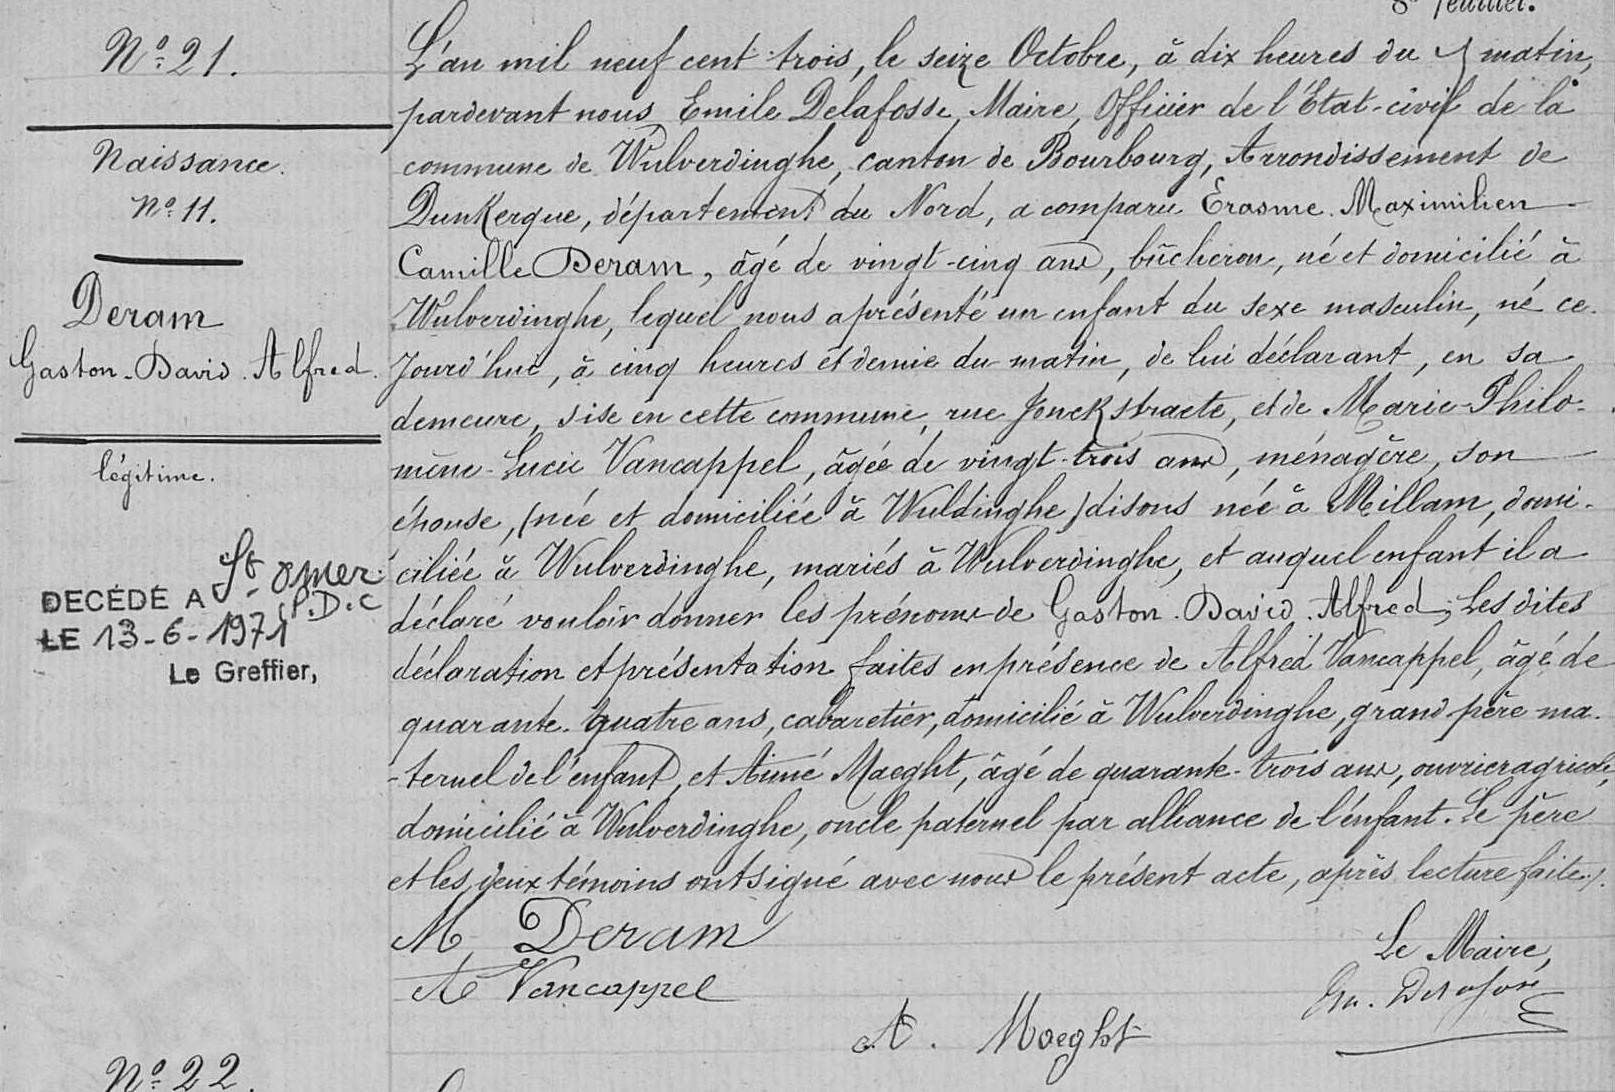 8e feuillet.
No 21.
Naissance.
No 11.
Deram
Gaston-David-Alfred.
légitime.
DECÉDÉ A St-omer
(P.D.C
LE 13-6-1971
Le Greffier,
L'an mil neuf cent trois, le seize Octobre, à dix heures du matin,
pardevant nous, Emile Delafosse, Maire, Officier de l'Etat-civil de la
commune de Wulverdinghe, canton de Bourbourg, Arrondissement de
Dunkerque, département du Nord, a comparu Erasme-Maximilien
Camille Deram, âgé de vingt-cinq ans, bûcheron, né et domicilié à
Wulverdinghe, lequel nous a présenté un enfant du sexe masculin, né ce-
jourd'hui, à cinq heures et demie du matin, de lui déclarant, en sa
demeure, sise en cette commune, rue Jenckstraete, et de Marie-Philo-
mène-Lucie Vancappel, âgée de vingt-trois ans, ménagère, son
épouse, (née et domiciliée à Wuldinghe) disons née à Millam, domi-
ciliée à Wulverdinghe, mariés à Wulverdinghe, et auquel enfant il a
déclaré vouloir donner les prénoms de Gaston-David-Alfred; Les dites
déclaration et présentation faites en présence de Alfred Vancappel, âgé de
quarante-quatre ans, cabaretier, domicilié à Wulverdinghe, grand père ma-
-ternel de l'enfant, et Aimé Maeght, âgé de quarante-trois ans, ouvrier agricole,
domicilié à Wulverdinghe, oncle paternel par alliance de l'enfant. Le père
et les deux témoins ont signé avec nous le présent acte, après lecture faite.
M, Deram
A Vancappel
A. Maeght
Le Maire,
Em. Delafosse
No 22.